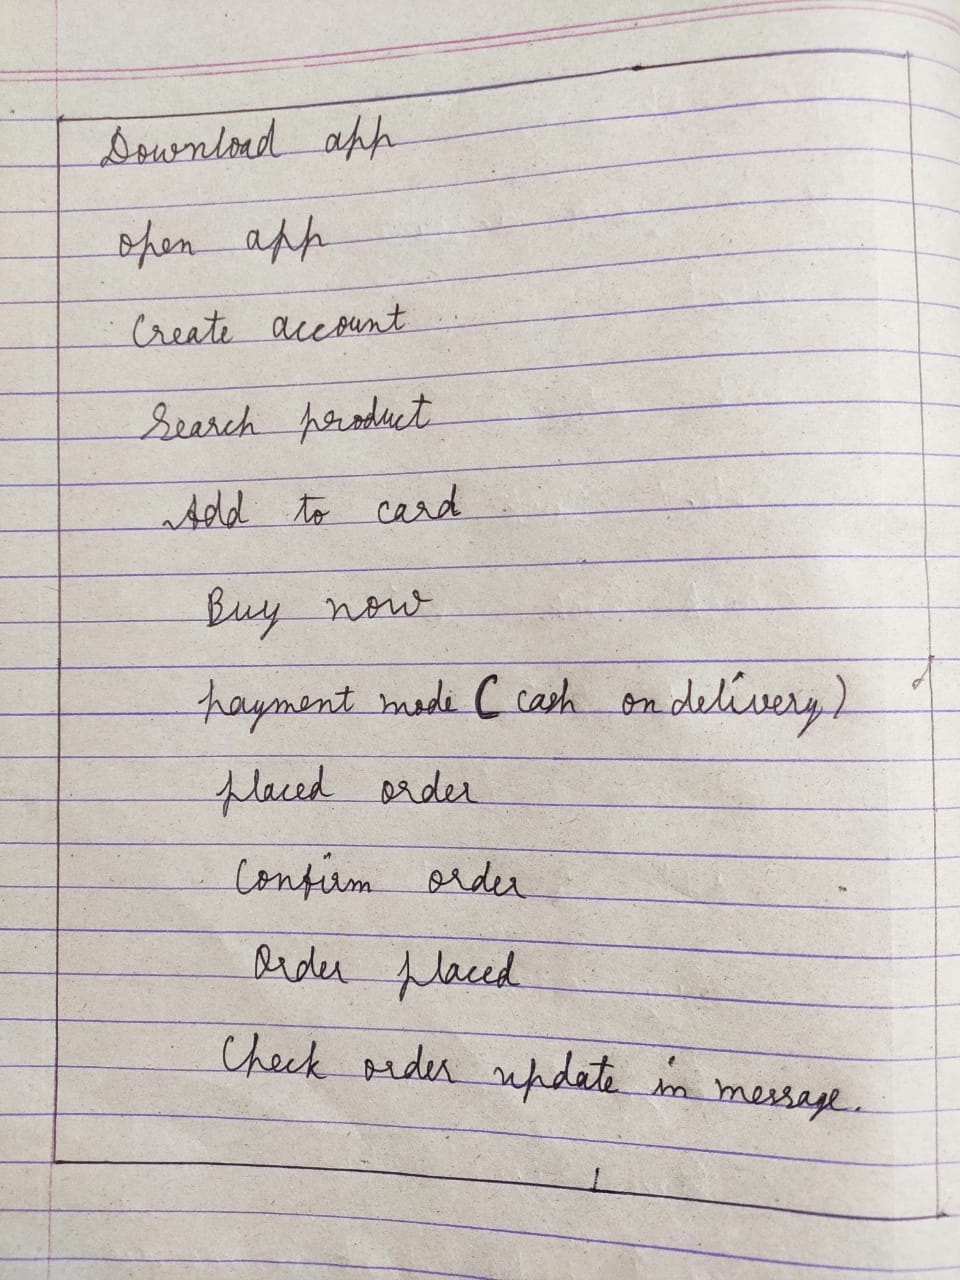 Download app
open app
Create account
Search product
Add to card
Buy now
payment mode ( cash on delivery )
placed order
Confirm order
Order placed
Check order update in message.